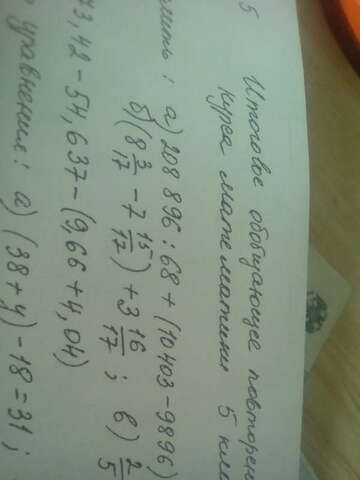 5 Итоговое обобщающее повторен
курса математики 5 кла
: а) 208 896 : 68 + (10403 - 9896)
б) (8 3/17 - 7 15/17) + 3 16/17 ; в) 2/5
73, 42 - 54, 637 - (9,66 + 4, 04)
уравнения: а) (38 + y) - 18 = 31 ;